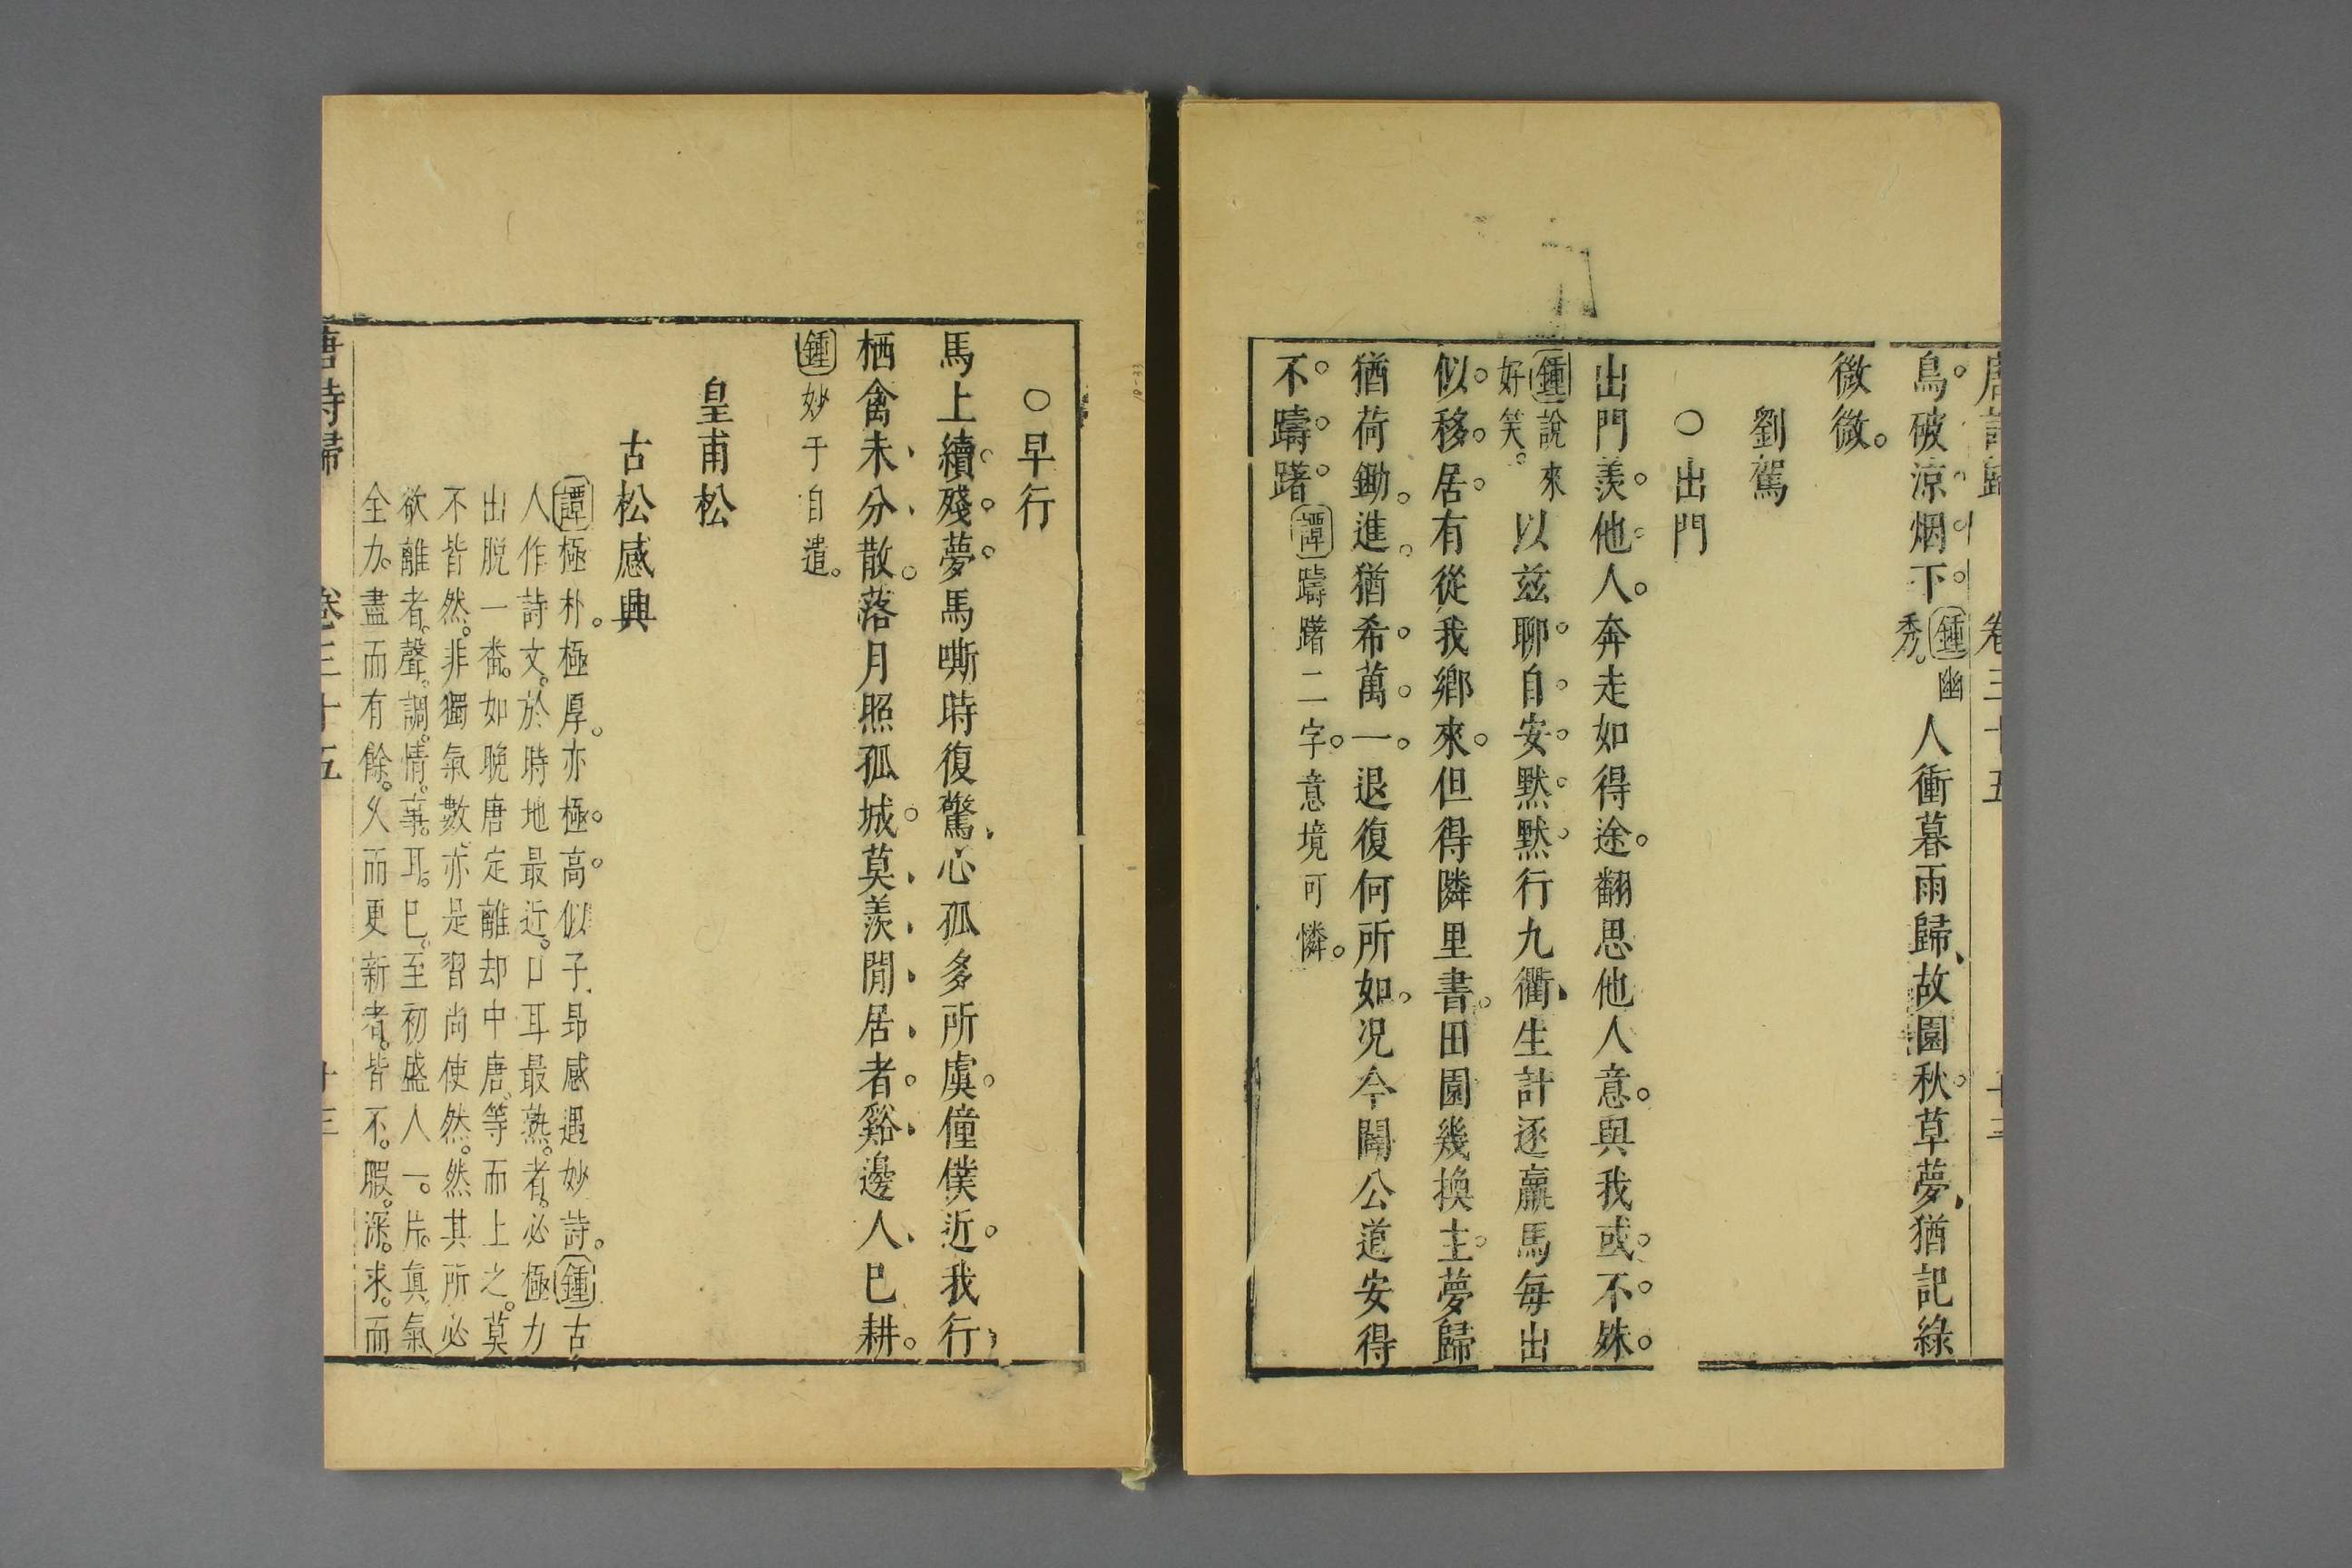 唐詩歸 卷三十五 十二
鳥破涼烟下鍾幽秀。人衝暮雨歸故園秋草夢猶記綠
微微。
劉駕
○出門
出門羨他人奔走如得途翻思他人意與我或不殊
鍾說來好笑。以兹聊自安默默行九衢生計逐羸馬每出
似移居有從我鄉來但得隣里書田園幾換主夢歸
猶荷鋤進猶希萬一退復何所如況今闢公道安得
不躊躇譚躊躇二字意境可憐。
○早行
馬上續殘夢馬嘶時復驚心孤多所虞僮僕近我行
栖禽未分散落月照孤城莫羨閒居者谿邊人已耕
鍾妙于自遣。
皇甫松
古松感興
譚極朴極厚亦極高似子昻感遇妙詩鍾古
人作詩文於時地最近口耳最熟者必極力
出脱一番如晚唐定離却中唐等而上之莫
不皆然非獨氣數亦是習尚使然然其所必
欲離者聲調情事耳已至初盛人一片眞氣
全力盡而有餘久而更新者皆不暇深求而
唐詩歸 卷三十五 十三